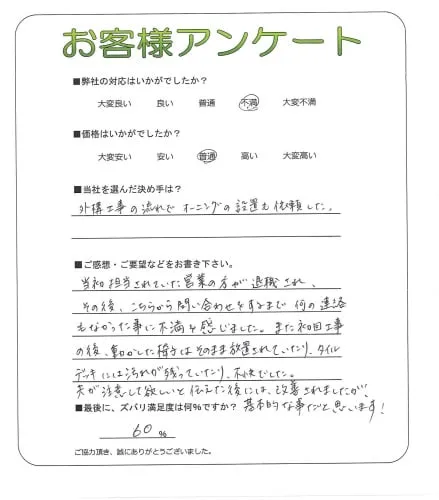 お客様アンケート
■弊社の対応はいかがでしたか？
大変良い 良い 普通 不満 大変不満
■価格はいかがでしたか？
大変安い 安い 普通 高い 大変高い
■当社を選んだ決め手は？
外構工事の流れで オーニングの設置も依頼した。
■ご感想・ご要望などをお書き下さい。
当初担当されていた営業の方が退職され、
その後、こちらから問い合わせをするまで 何の連絡
もなかった事に不満を感じました。また初回工事
の後、動かした椅子はそのまま放置されていたり、タイル
デッキには汚れが残っていたり、不快でした。
夫が注意して欲しいと伝えた後には、改善されましたが、
■最後に、ズバリ満足度は何%ですか？ 基本的な事だと思います！
60 %
ご協力頂き、誠にありがとうございました。